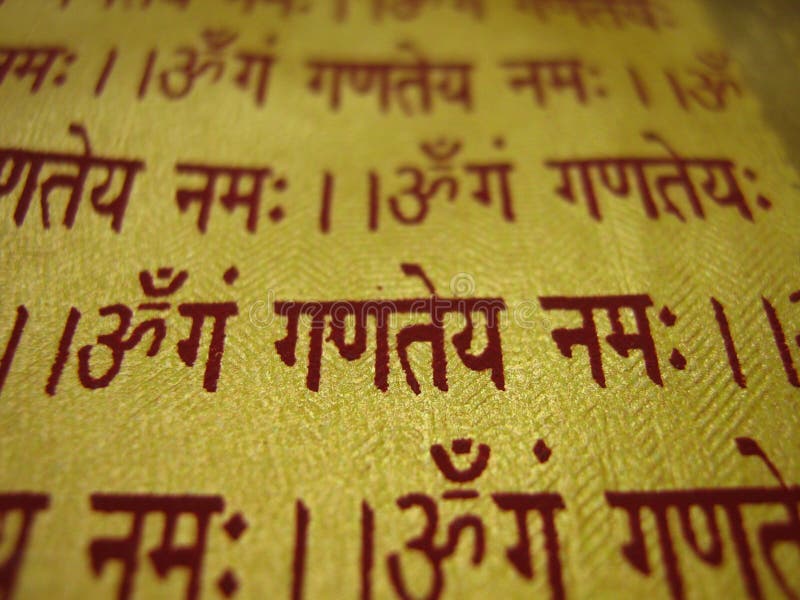 नमः ।। ॐ गं गणतेय नमः ।। ॐ
गणतेय नमः ।। ॐ गं गणतेयः
।। ॐ गं गणतेय नमः ।।
नमः ।। ॐ गं गणते